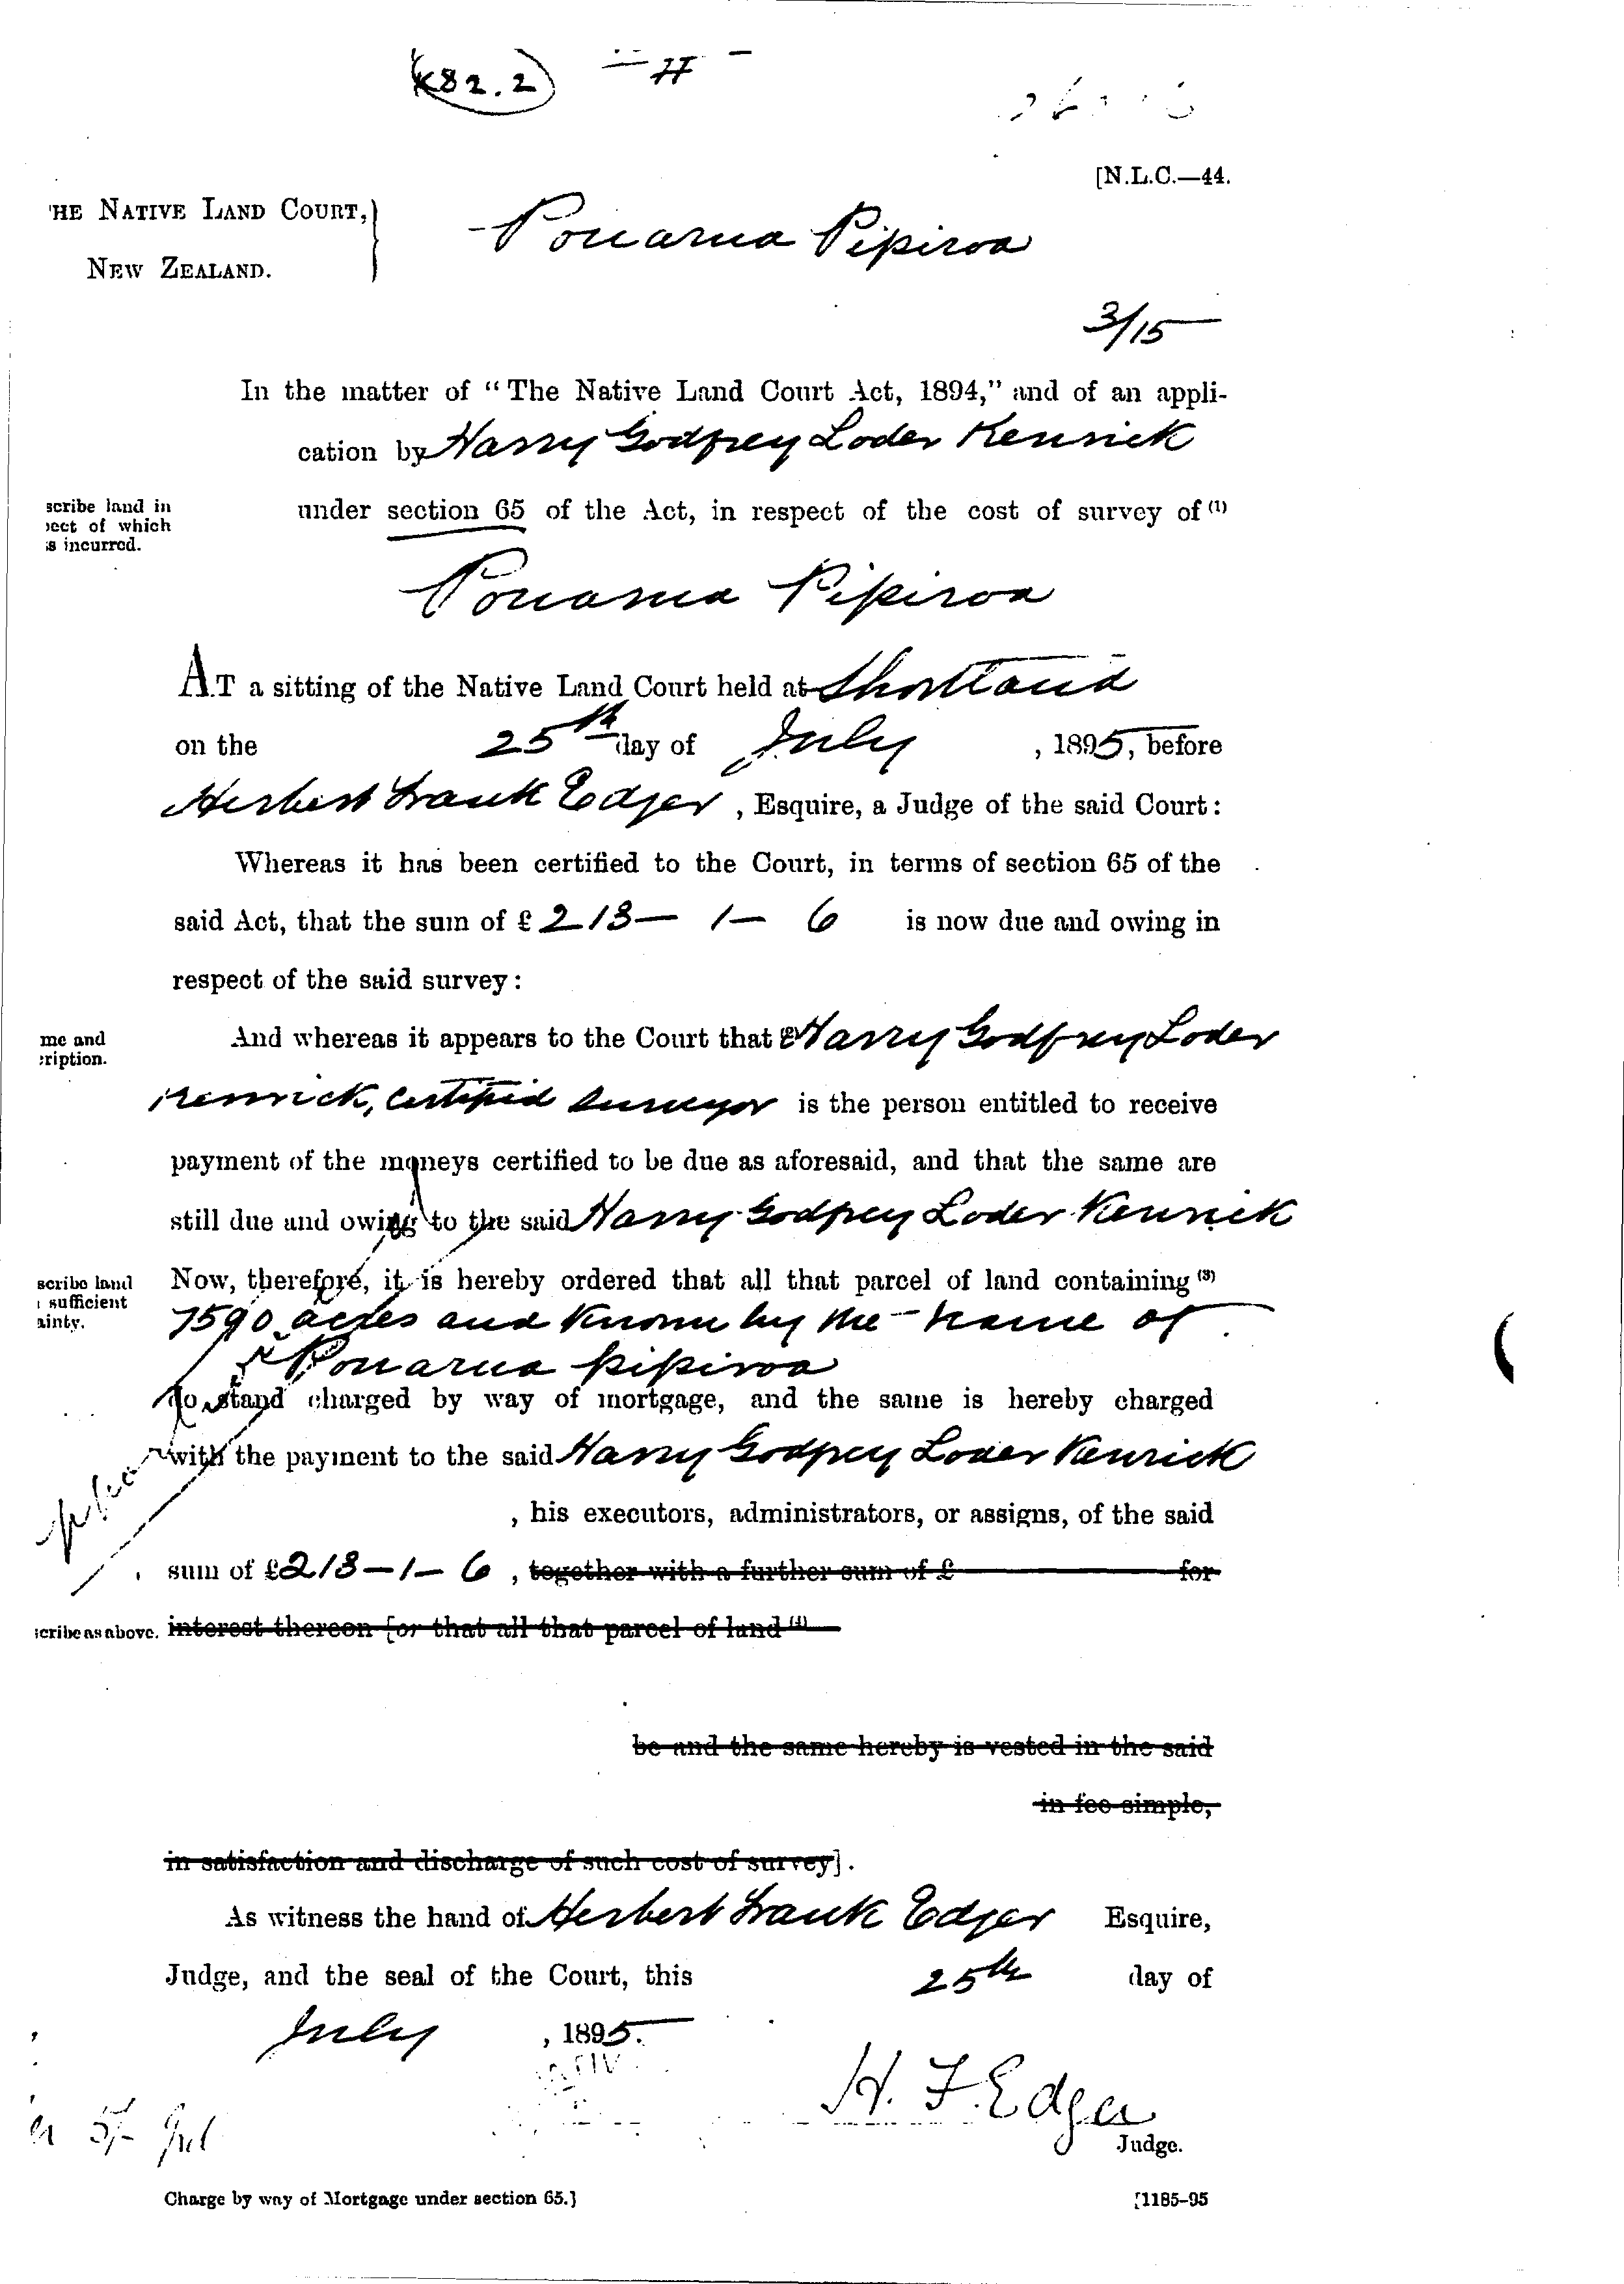 (K82.2)
[N.L.C.—44.
HE NATIVE LAND COURT,
NEW ZEALAND.
Pouarua Pipiroa
3/15
In the matter of “The Native Land Court Act, 1894,” and of an appli-
cation by Harry Godfrey Loder Kenrick
scribe land in
ect of which
s incurred.
under section 65 of the Act, in respect of the cost of survey of (1)
Pouarua Pipiroa
AT a sitting of the Native Land Court held at Shortland
on the 25th day of July, 1895, before
Herbert Frank Edger, Esquire, a Judge of the said Court:
Whereas it has been certified to the Court, in terms of section 65 of the
said Act, that the sum of £213—1—6 is now due and owing in
respect of the said survey:
me and
ription.
And whereas it appears to the Court that Harry Godfrey Loder
Kenrick, Certified Surveyor is the person entitled to receive
payment of the moneys certified to be due as aforesaid, and that the same are
still due and owing to the said Harry Godfrey Loder Kenrick
scribe land
sufficient
ainty.
Now, therefore, it is hereby ordered that all that parcel of land containing (3)
7590 acres and known by the name of
Pouarua Pipiroa
do stand charged by way of mortgage, and the same is hereby charged
with the payment to the said Harry Godfrey Loder Kenrick
, his executors, administrators, or assigns, of the said
sum of £213—1—6, together with a further sum of £ for
cribe as above.
interest thereon [or that all that parcel of land (4)
be and the same hereby is vested in the said
in fee simple,
in satisfaction and discharge of such cost of survey].
As witness the hand of Herbert Frank Edger Esquire,
Judge, and the seal of the Court, this 25th day of
July, 1895.
H. F. Edger
Judge.
Charge by way of Mortgage under section 65.]
[1185–95